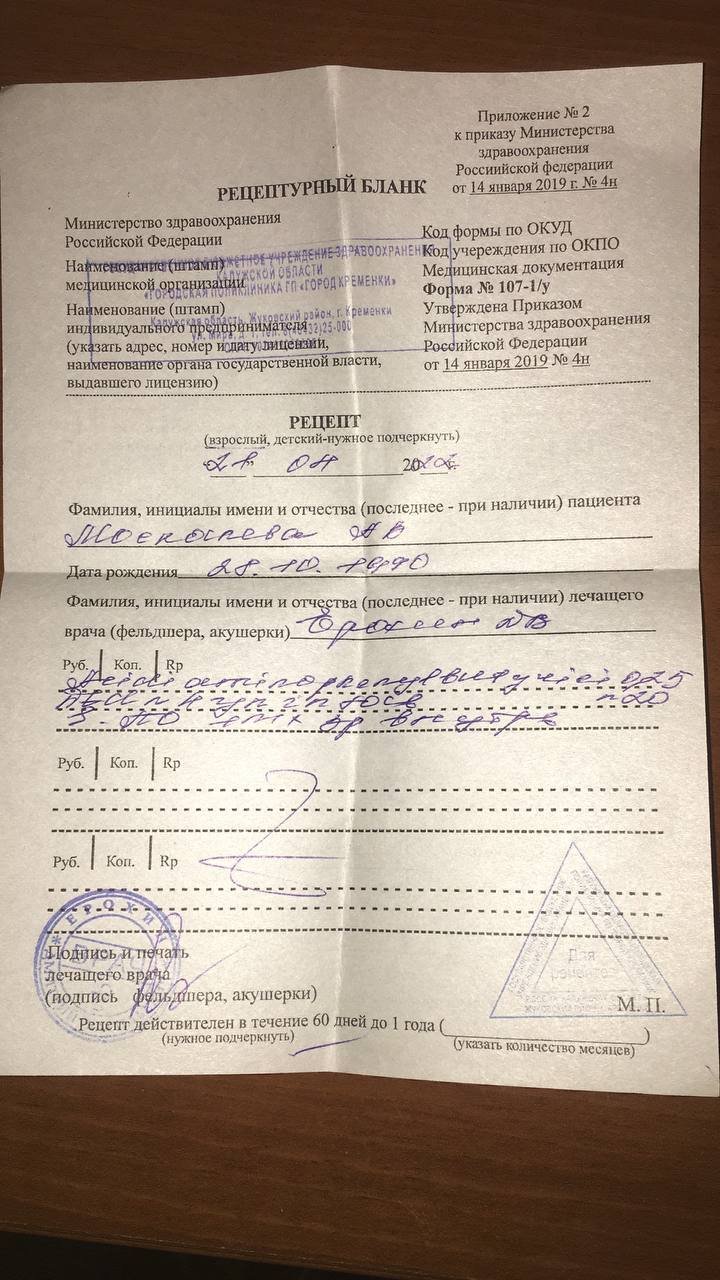 Приложение № 2
к приказу Министерства
здравоохранения
Россиийской федерации
от 14 января 2019 г. № 4н
РЕЦЕПТУРНЫЙ БЛАНК
Министерство здравоохранения
Российской Федерации
Наименование (штамп)
медицинской организации
Наименование (штамп)
индивидуального предпринимателя
(указать адрес, номер и дату лицензии,
наименование органа государственной власти,
выдавшего лицензию)
БЮДЖЕТНОЕ УЧРЕЖДЕНИЕ ЗДРАВООХРАНЕНИЯ
КАЛУЖСКОЙ ОБЛАСТИ
«ГОРОДСКАЯ ПОЛИКЛИНИКА ГП «ГОРОД КРЕМЕНКИ»
Калужская область, Жуковский район, г. Кременки
ул. Мира, д. 1, тел. 8(48432)25-000
Код формы по ОКУД
Код учереждения по ОКПО
Медицинская документация
Форма № 107-1/у
Утверждена Приказом
Министерства здравоохранения
Российской Федерации
от 14 января 2019 № 4н
РЕЦЕПТ
(взрослый, детский-нужное подчеркнуть)
04 2022г.
Фамилия, инициалы имени и отчества (последнее - при наличии) пациента
Москалева АВ
Дата рождения 28.10.1990
Фамилия, инициалы имени и отчества (последнее - при наличии) лечащего
врача (фельдшера, акушерки) Ерохин
Руб. Коп. Rp
0,25
n 20
внутрь
Руб. Коп. Rp
Руб. Коп. Rp
ЕРОХИН
ВРАЧ
Подпись и печать
лечащего врача
(подпись фельдшера, акушерки)
Для
рецептов
М. П.
Рецепт действителен в течение 60 дней до 1 года ( )
(нужное подчеркнуть)
(указать количество месяцев)